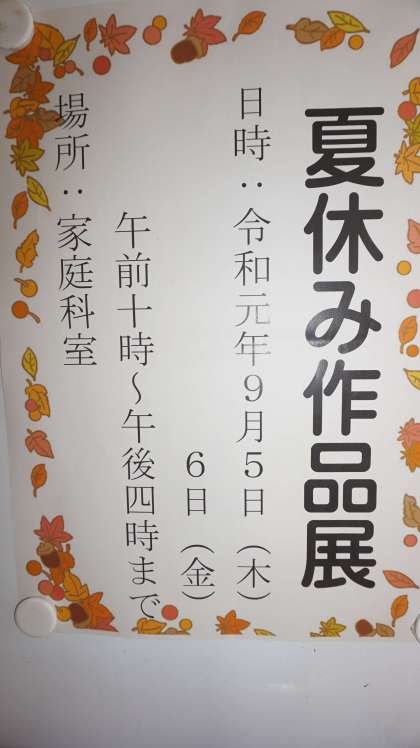 夏休み作品展
日時：令和元年９月５日（木）
６日（金）
午前十時～午後四時まで
場所：家庭科室